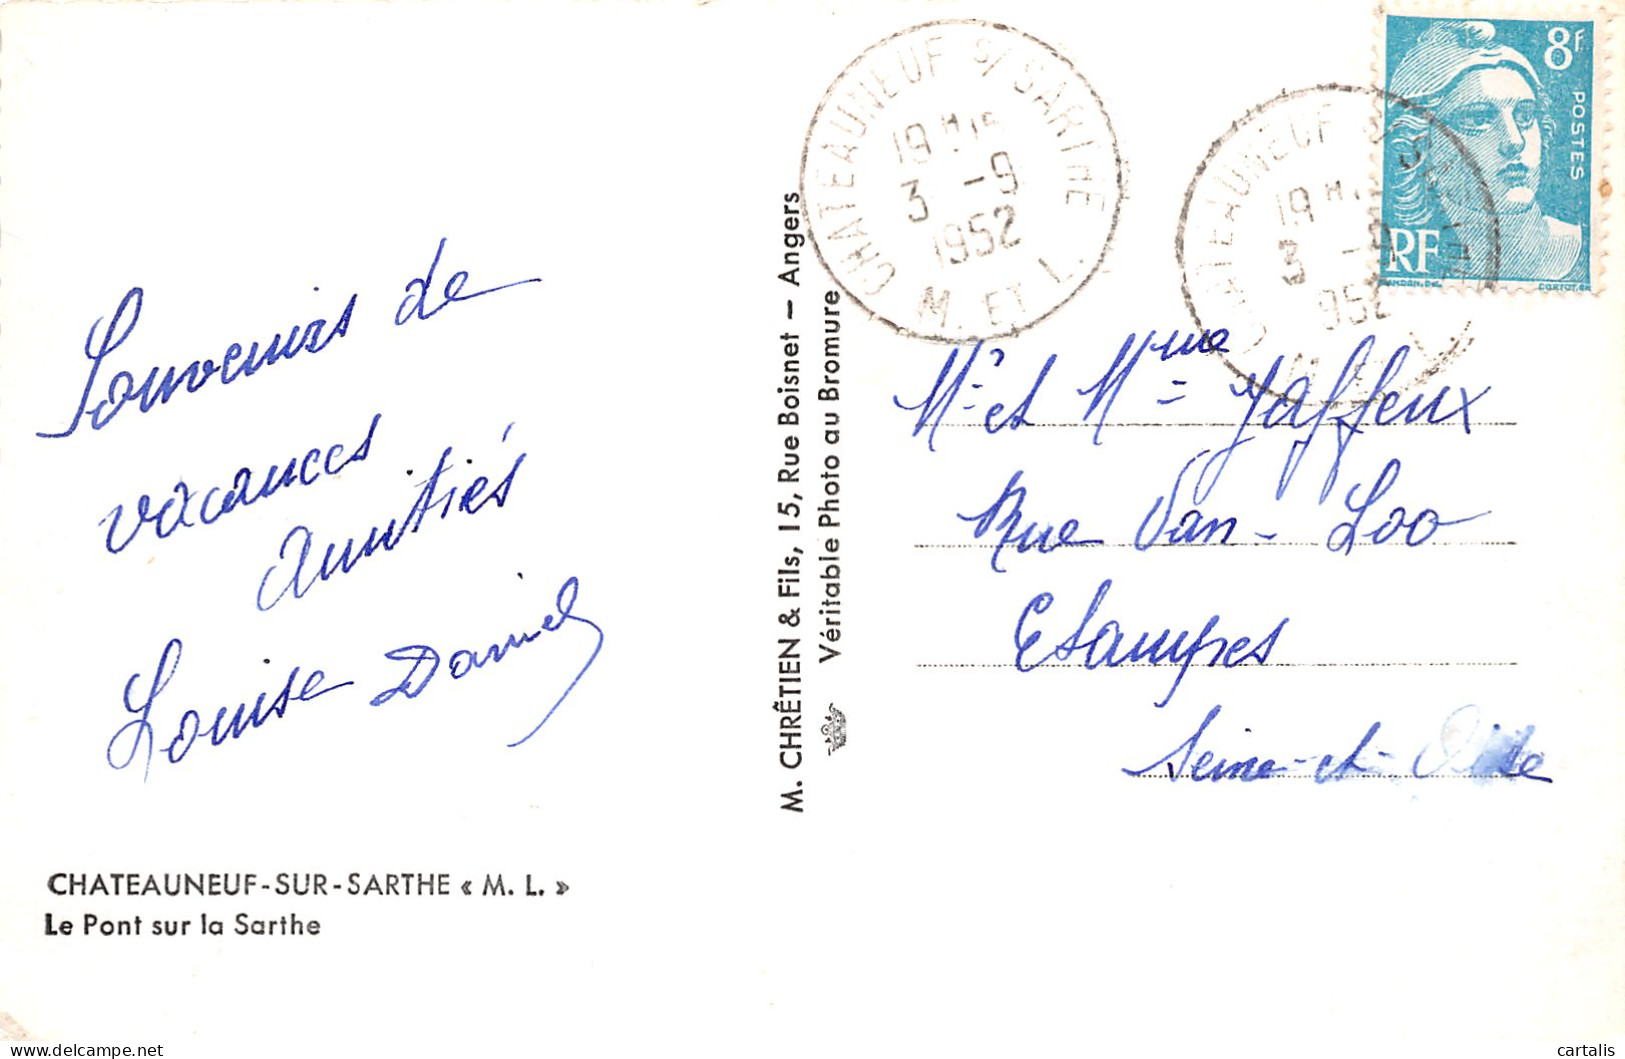 Souvenirs de
vacances
Amitiés
Louise Daniel
CHATEAUNEUF-SUR-SARTHE « M. L. »
Le Pont sur la Sarthe
M. CHRÊTIEN & Fils, 15, Rue Boisnet — Angers
Véritable Photo au Bromure
CHATEAUNEUF S/ SARTHE
19 H 15
3 -9
1952
M. ET L.
CHATEAUNEUF S/ SARTHE
19 H
3 -9
952
8F.
POSTES
RF
GANDON. DEL.
CORTOT. SC
Mr et Mme Jaffeux
Rue Van-Loo
Etampes
Seine-et-Oise
delcampe.net
cartalis